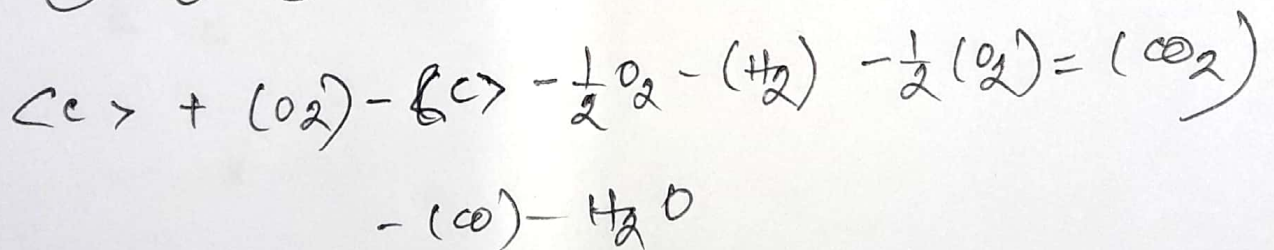 <c> + (O2) - <c> - 1/2 O2 - (H2) - 1/2 (O2) = (CO2)
- (CO) - H2O